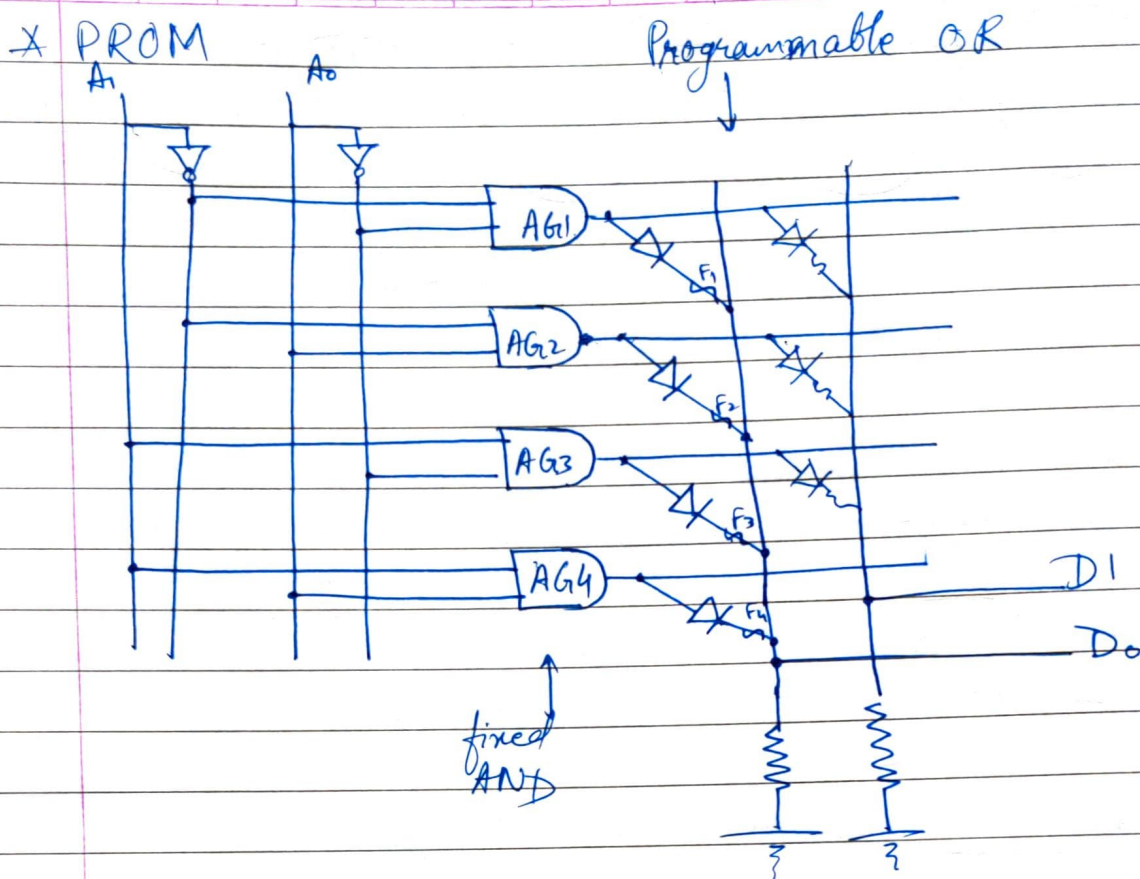 X PROM
Programmable OR
A1
A0
AG1
F1
AG2
F2
AG3
F3
AG4
F4
D1
D0
fixed
AND